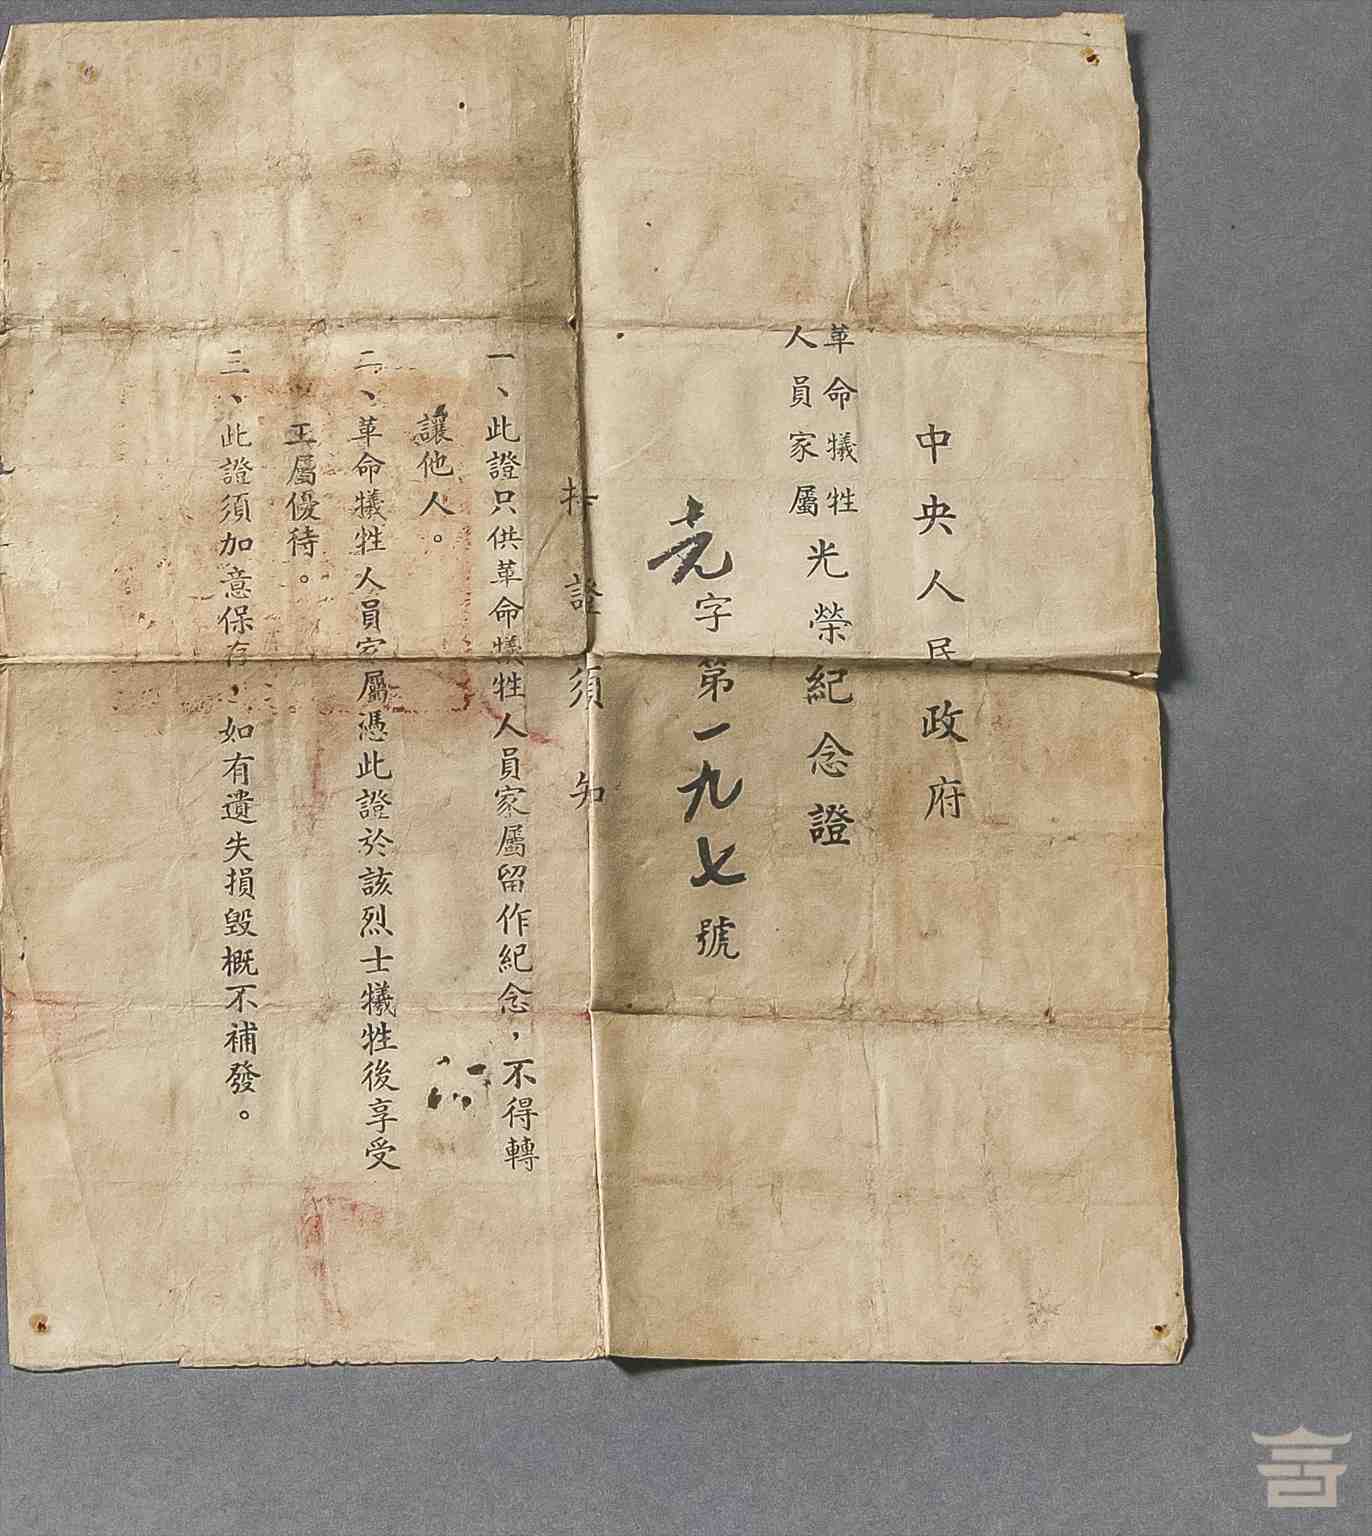 中央人民政府
革命犧牲人員家屬光榮紀念證
字第一九七號
持證須知
一、此證只供革命犧牲人員家屬留作紀念，不得轉
讓他人。
二、革命犧牲人員家屬憑此證於該烈士犧牲後享受
工屬優待。
三、此證須加意保存，如有遺失損毀概不補發。